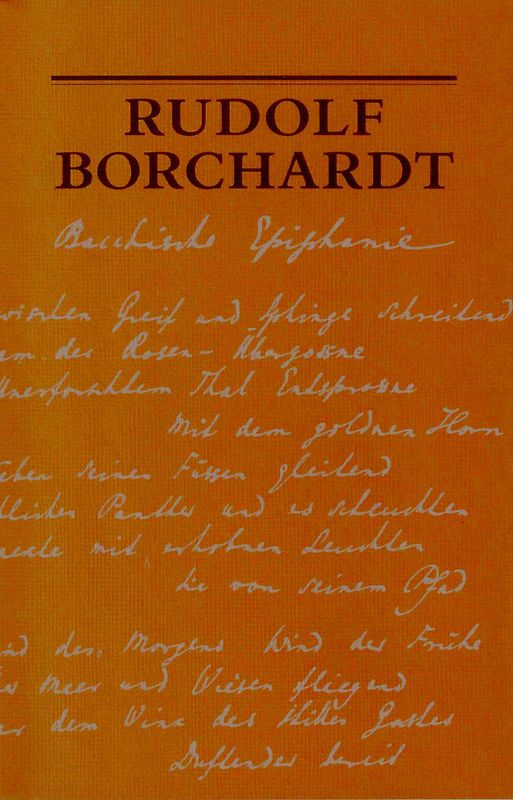 RUDOLF
BORCHARDT
Bacchische Epiphanie
wischen Greif und schreitend
am der Rosen-Übergossne
Unerforschtem Thal Entsprossne
Mit dem goldnen Horn
eben seinen Füssen gleitend
tlicher Panther und es scheuchten
mit erhobnen Leuchten
Sie von seinem Pfad
nd des Morgens Wind der Frühe
er Meer und Wiesen fliegend
dem des Gottes
Duftender bereit